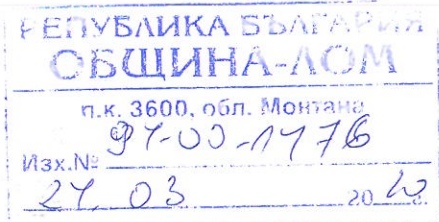 РЕПУБЛИКА БЪЛГАРИЯ
ОБЩИНА-ЛОМ
п.к. 3600, обл. Монтана
Изх.№ 91-00-1176
24. 03 20 г.